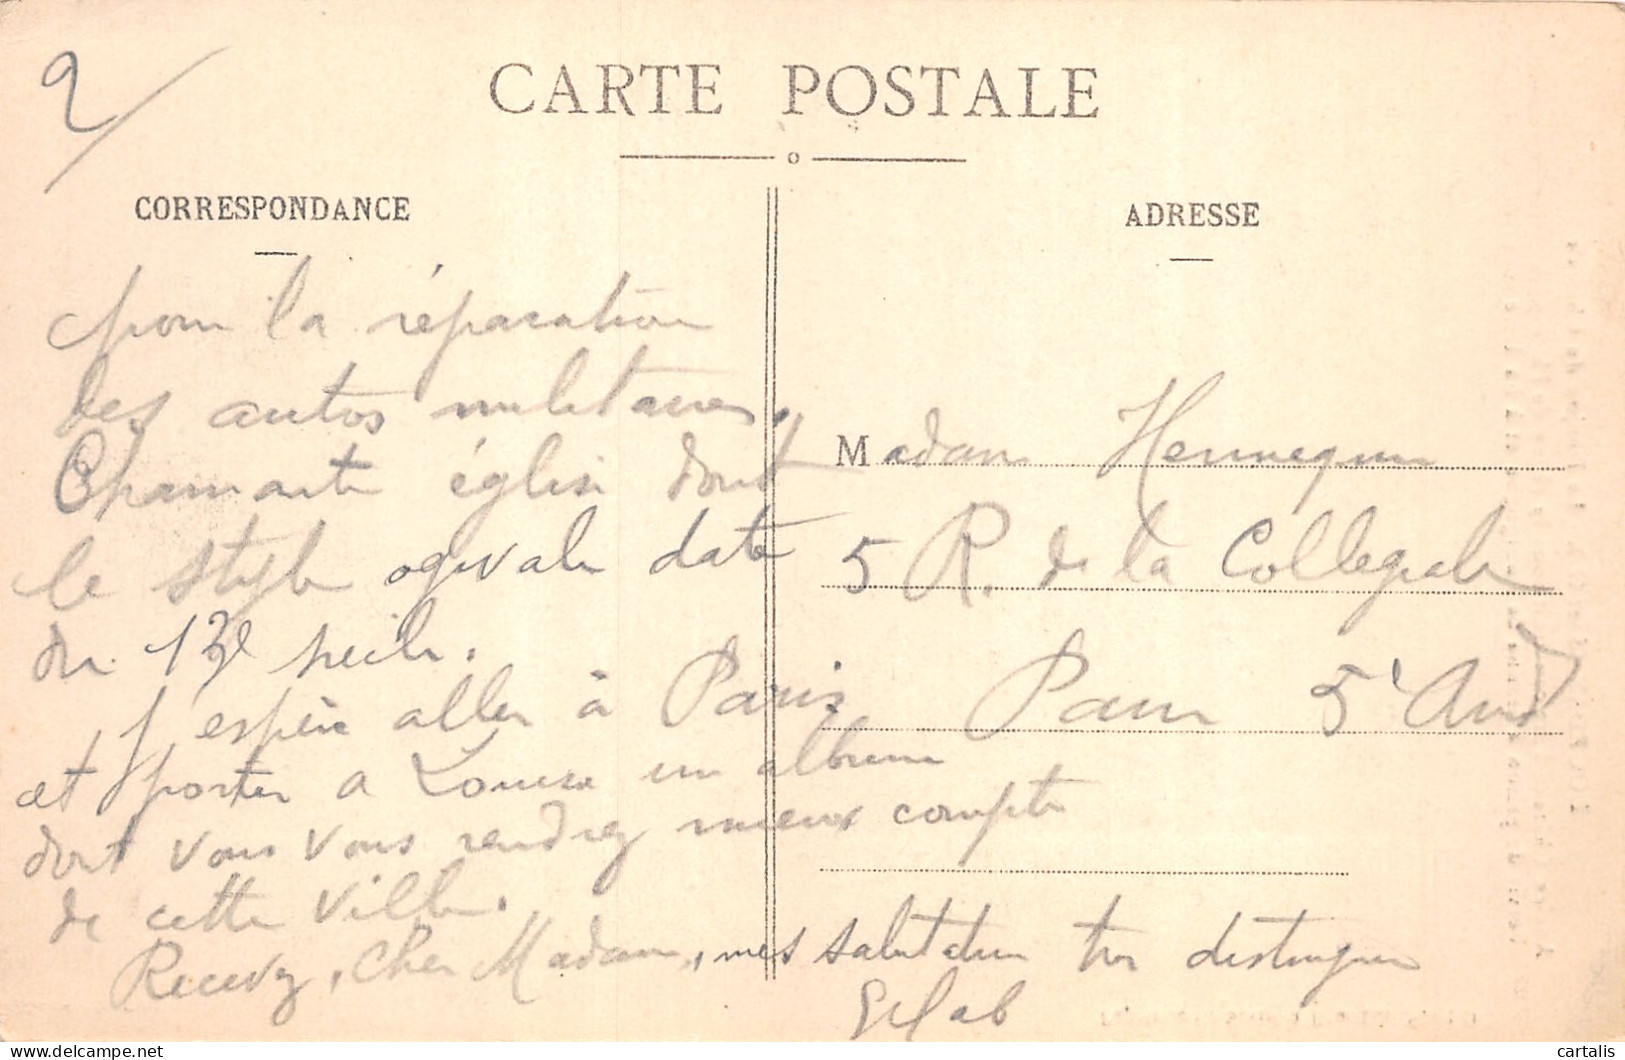 2/
CARTE POSTALE
CORRESPONDANCE
pour la réparation
des autos militaires.
Charmante église dont
le style ogivale date
du 13e siècle.
J'espère aller à Paris
et porter a Louise un album
dont vous vous rendrez mieux compte
de cette ville.
Recevez, Cher Madame, mes salutation très distingués
ADRESSE
Madame Hennequin
5 R. de la Collegiale
Paris 5e Arrd
cartalis